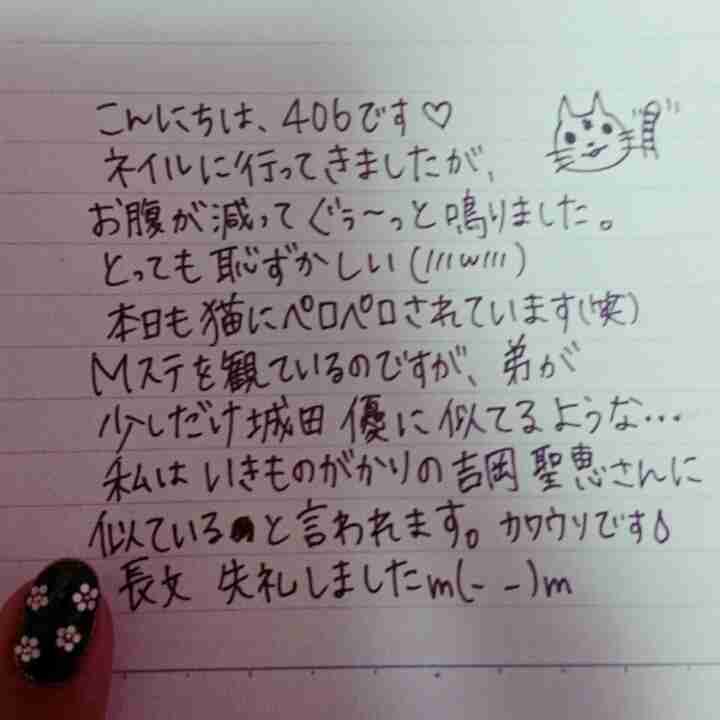 こんにちは、406です♡
ネイルに行ってきましたが、
お腹が減ってぐぅ〜っと鳴りました。
とっても恥ずかしい(///w///)
本日も猫にペロペロされています(笑)
Mステを観ているのですが、弟が
少しだけ城田 優に似てるような…
私はいきものがかりの吉岡 聖恵さんに
似ていると言われます。カワウソです♪
長文 失礼しましたm(- -)m